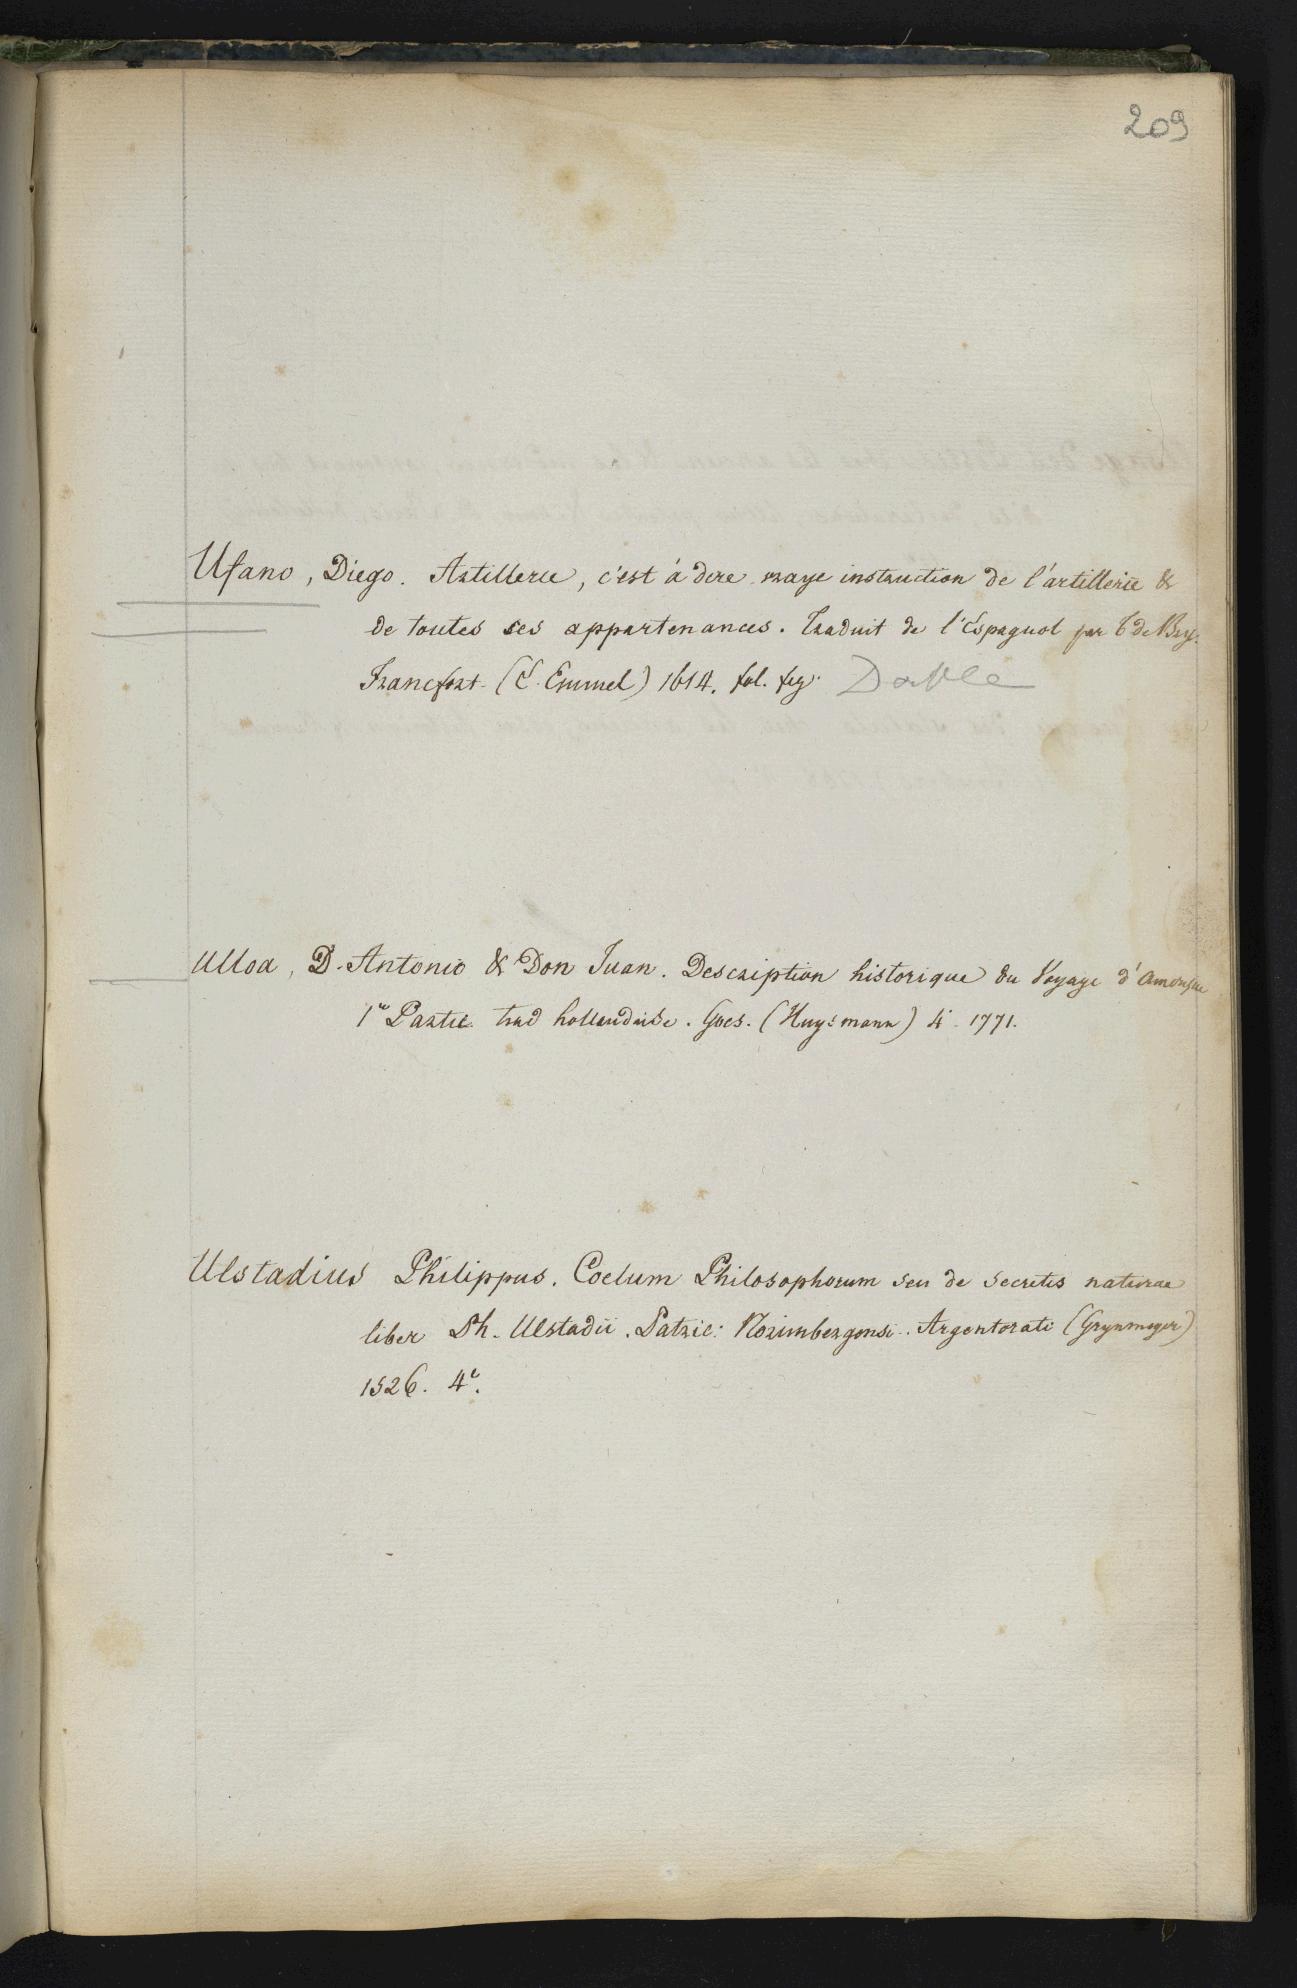 209
Ufano, Diego. Artillerie, c'est à dire vraye instruction de l'artillerie &
de toutes ses appartenances. Traduit de l'Espagnol par T de Bry.
Francfort. (E. Emmel) 1614. fol. fig. Double
Ulloa, D. Antonio & Don Juan. Description historique du Voyage d'Amerique
1re Partie. trad hollandaise. Goes. (Huysmann) 4° 1771.
Ulstadius Philippus. Coelum Philosophorum seu de secretis naturae
liber Ph. Ulstadii. Patric: Norimbergensi. Argentorati (Grynmeyer)
1526. 4°.